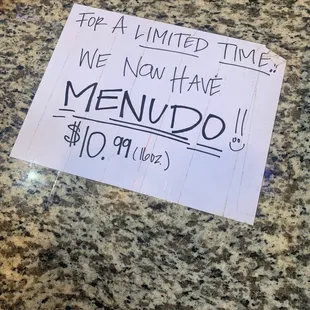 FOR A LIMITED TIME..
WE NOW HAVE
MENUDO!!
$10.99 (16oz.)